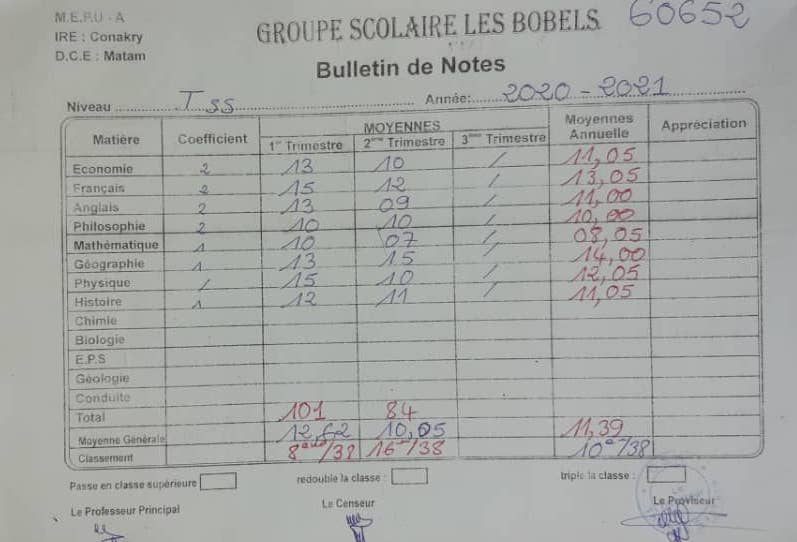 M.E.P.U - A
IRE : Conakry
D.C.E : Matam
GROUPE SCOLAIRE LES BOBELS 60652
Bulletin de Notes
Niveau T SS Année: 2020 - 2021
Matière Coefficient MOYENNES Moyennes Annuelle Appréciation
1er Trimestre 2ème Trimestre 3ème Trimestre
Economie 2 13 10 / 11,05
Français 2 15 12 / 13,05
Anglais 2 13 09 / 11,00
Philosophie 2 10 10 / 10,00
Mathématique 1 10 07 / 08,05
Géographie 1 13 15 / 14,00
Physique / 15 10 / 12,05
Histoire 1 12 11 / 11,05
Chimie
Biologie
E.P.S
Géologie
Conduite
Total 101 84
Moyenne Générale 12,62 10,05 11,39
Classement 16 /38 10e/38
Passe en classe supérieure redouble la classe : triple la classe :
Le Professeur Principal Le Censeur Le Proviseur